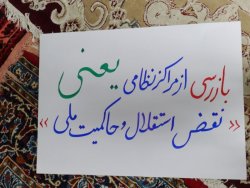 بازرسی از مراکز نظامی یعنی
« نقض استقلال و حاکمیت ملی »